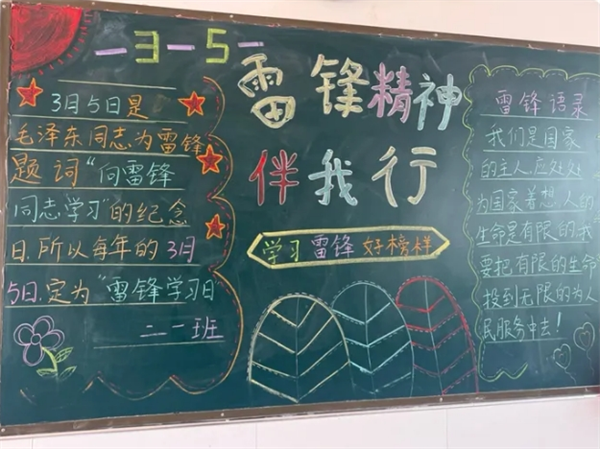 3-5
3月5日是
毛泽东同志为雷锋
题词“向雷锋
同志学习”的纪念
日,所以每年的3月
5日,定为“雷锋学习日”
二一班
雷锋精神
伴我行
学习雷锋好榜样
雷锋语录
我们是国家
的主人,应处处
为国家着想,人的
生命是有限的,我
要把有限的生命
投到无限的为人
民服务中去!